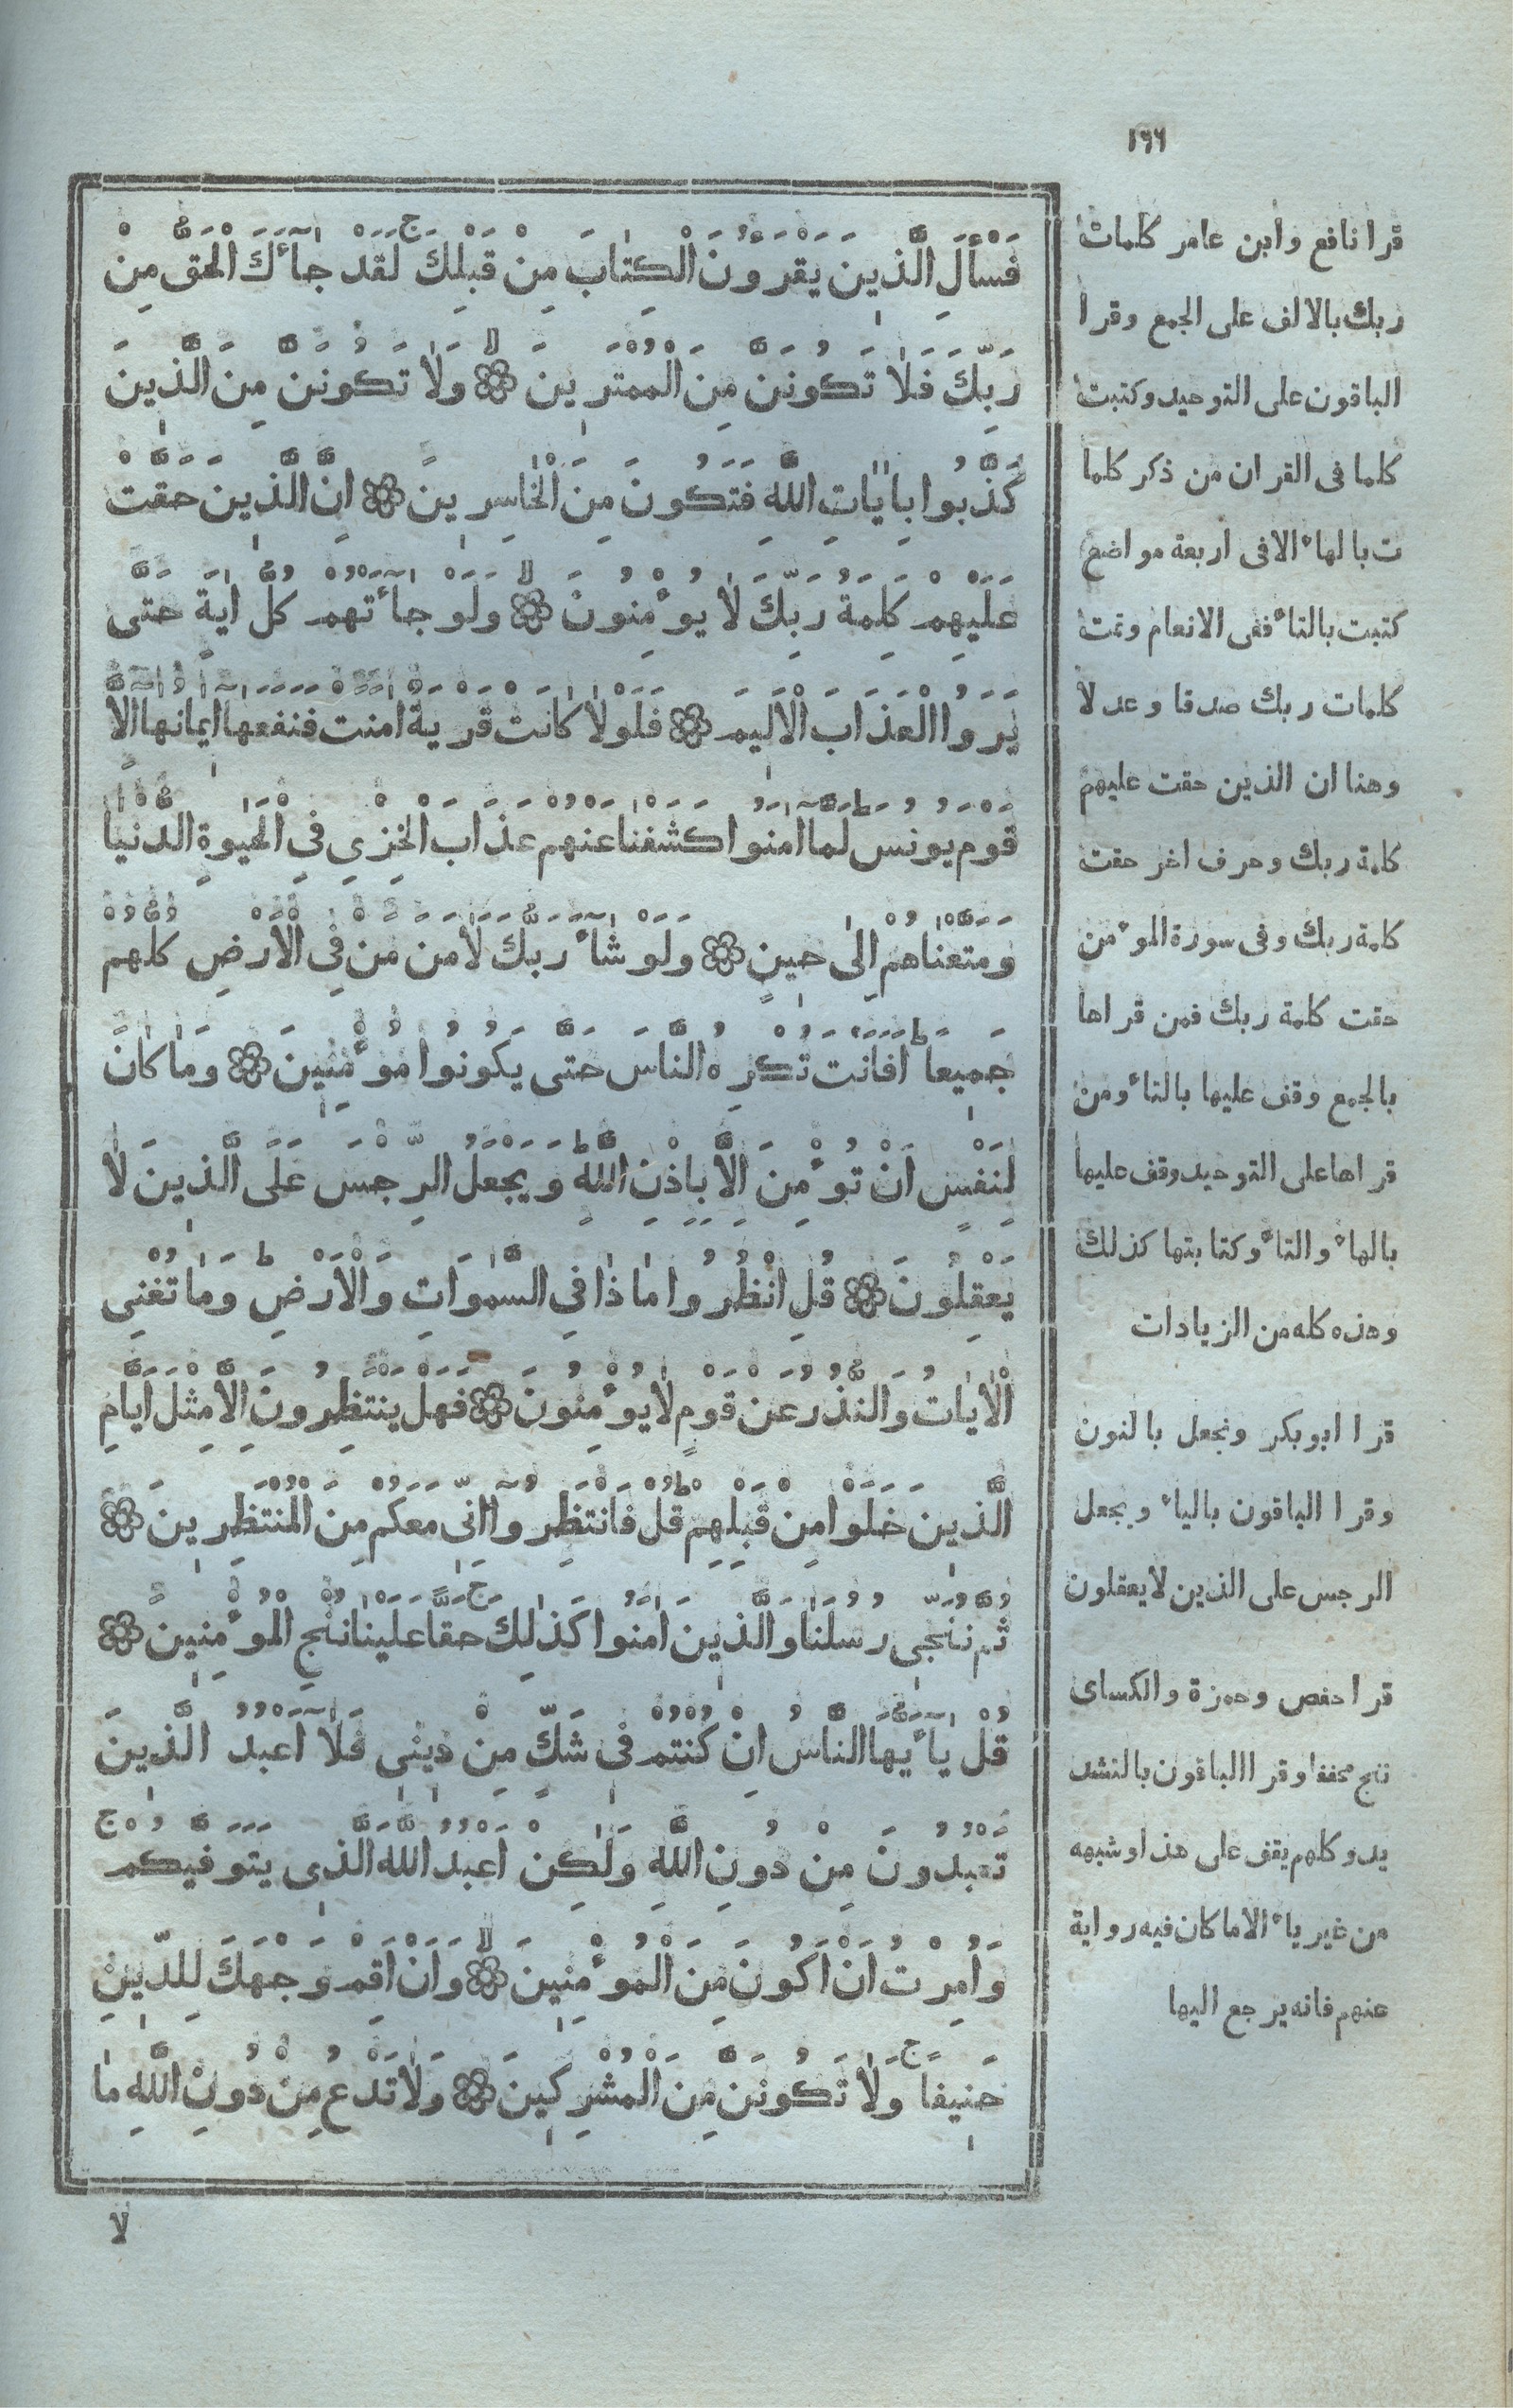 ١٦٦
فَسْأَلِ الَّذِينَ يَقْرَؤُنَ الْكِتَابَ مِنْ قَبْلِكَ ج لَقَدْ جَآءَكَ الْحَقُّ مِنْ
رَبِّكَ فَلَا تَكُونَنَّ مِنَ الْمُمْتَرِينَ لا وَلَا تَكُونَنَّ مِنَ الَّذِينَ
كَذَّبُوا بِاٰيَاتِ اللَّهِ فَتَكُونَ مِنَ الْخَاسِرِينَ اِنَّ الَّذِينَ حَقَّتْ
عَلَيْهِمْ كَلِمَةُ رَبِّكَ لَا يُؤْمِنُونَ لا وَلَوْ جَآءَتْهُمْ كُلُّ اٰيَةٍ حَتَّى
يَرَوُا الْعَذَابَ الْاَلِيمَ فَلَوْلَا كَانَتْ قَرْيَةٌ اٰمَنَتْ فَنَفَعَهَآ اِيمَانُهَآ اِلَّا
قَوْمَ يُونُسَ ط لَمَّآ اٰمَنُوا كَشَفْنَا عَنْهُمْ عَذَابَ الْخِزْيِ فِي الْحَيٰوةِ الدُّنْيَا
وَمَتَّعْنَاهُمْ اِلَى حِينٍ وَلَوْ شَآءَ رَبُّكَ لَاٰمَنَ مَنْ فِي الْاَرْضِ كُلُّهُمْ
جَمِيعًا ط اَفَاَنْتَ تُكْرِهُ النَّاسَ حَتَّى يَكُونُوا مُؤْمِنِينَ وَمَا كَانَ
لِنَفْسٍ اَنْ تُؤْمِنَ اِلَّا بِاِذْنِ اللَّهِ ط وَيَجْعَلُ الرِّجْسَ عَلَى الَّذِينَ لَا
يَعْقِلُونَ قُلِ انْظُرُوا مَا ذَا فِي السَّمٰوَاتِ وَالْاَرْضِ ط وَمَا تُغْنِي
الْاٰيَاتُ وَالنُّذُرُ عَنْ قَوْمٍ لَا يُؤْمِنُونَ فَهَلْ يَنْتَظِرُونَ اِلَّا مِثْلَ اَيَّامِ
الَّذِينَ خَلَوْا مِنْ قَبْلِهِمْ ط قُلْ فَانْتَظِرُوآ اِنِّي مَعَكُمْ مِنَ الْمُنْتَظِرِينَ
ثُمَّ نُنَجِّي رُسُلَنَا وَالَّذِينَ اٰمَنُوا كَذٰلِكَ ج حَقًّا عَلَيْنَا نُنْجِ الْمُؤْمِنِينَ
قُلْ يَآءَيُّهَا النَّاسُ اِنْ كُنْتُمْ فِي شَكٍّ مِنْ دِينِي فَلَآ اَعْبُدُ الَّذِينَ
تَعْبُدُونَ مِنْ دُونِ اللَّهِ وَلٰكِنْ اَعْبُدُ اللَّهَ الَّذِي يَتَوَفَّيكُمْ ج
وَاُمِرْتُ اَنْ اَكُونَ مِنَ الْمُؤْمِنِينَ لا وَاَنْ اَقِمْ وَجْهَكَ لِلدِّينِ
حَنِيفًا ج وَلَا تَكُونَنَّ مِنَ الْمُشْرِكِينَ وَلَا تَدْعُ مِنْ دُونِ اللَّهِ مَا
لا
قرا نافع وابن عامر كلمات
ربك بالالف على الجمع وقرا
الباقون على التوحيد وكتبت
كلما فى القران من ذكر كلما
ت بالهاء الا فى اربعة مواضع
كتبت بالتاء ففى الانعام وتمت
كلمات ربك صدقا وعدلا
وهنا ان الذين حقت عليهم
كلمة ربك وحرف اخر حقت
كلمة ربك وفى سورة المؤمن
حقت كلمة ربك فمن قراها
بالجمع وقف عليها بالتاء ومن
قراها على التوحيد وقف عليها
بالهاء والتاء وكتابتها كذلك
وهذه كله من الزيادات
قرا ابوبكر ونجعل بالنون
وقرا الباقون بالياء ويجعل
الرجس على الذين لا يعقلون
قرا حفص وحمزة والكساى
ننج مخففا وقرا الباقون بالتشد
يد وكلهم يقف على هذا وشبهه
من غير ياء الا ما كان فيه رواية
عنهم فانه يرجع اليها